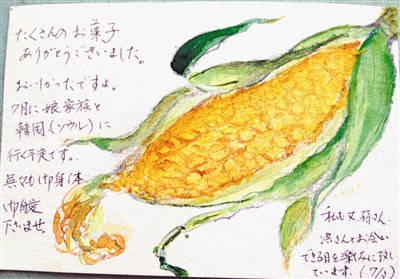 たくさんのお菓子
ありがとうございました。
おいしかったですよ。
7月に娘家族と
韓国(ソウル)に
行く予定です。
呉々も御身体
御自愛
下さいませ
私も又 さん
さんとお会い
できる日を楽しみに致し
ています。(7/3)